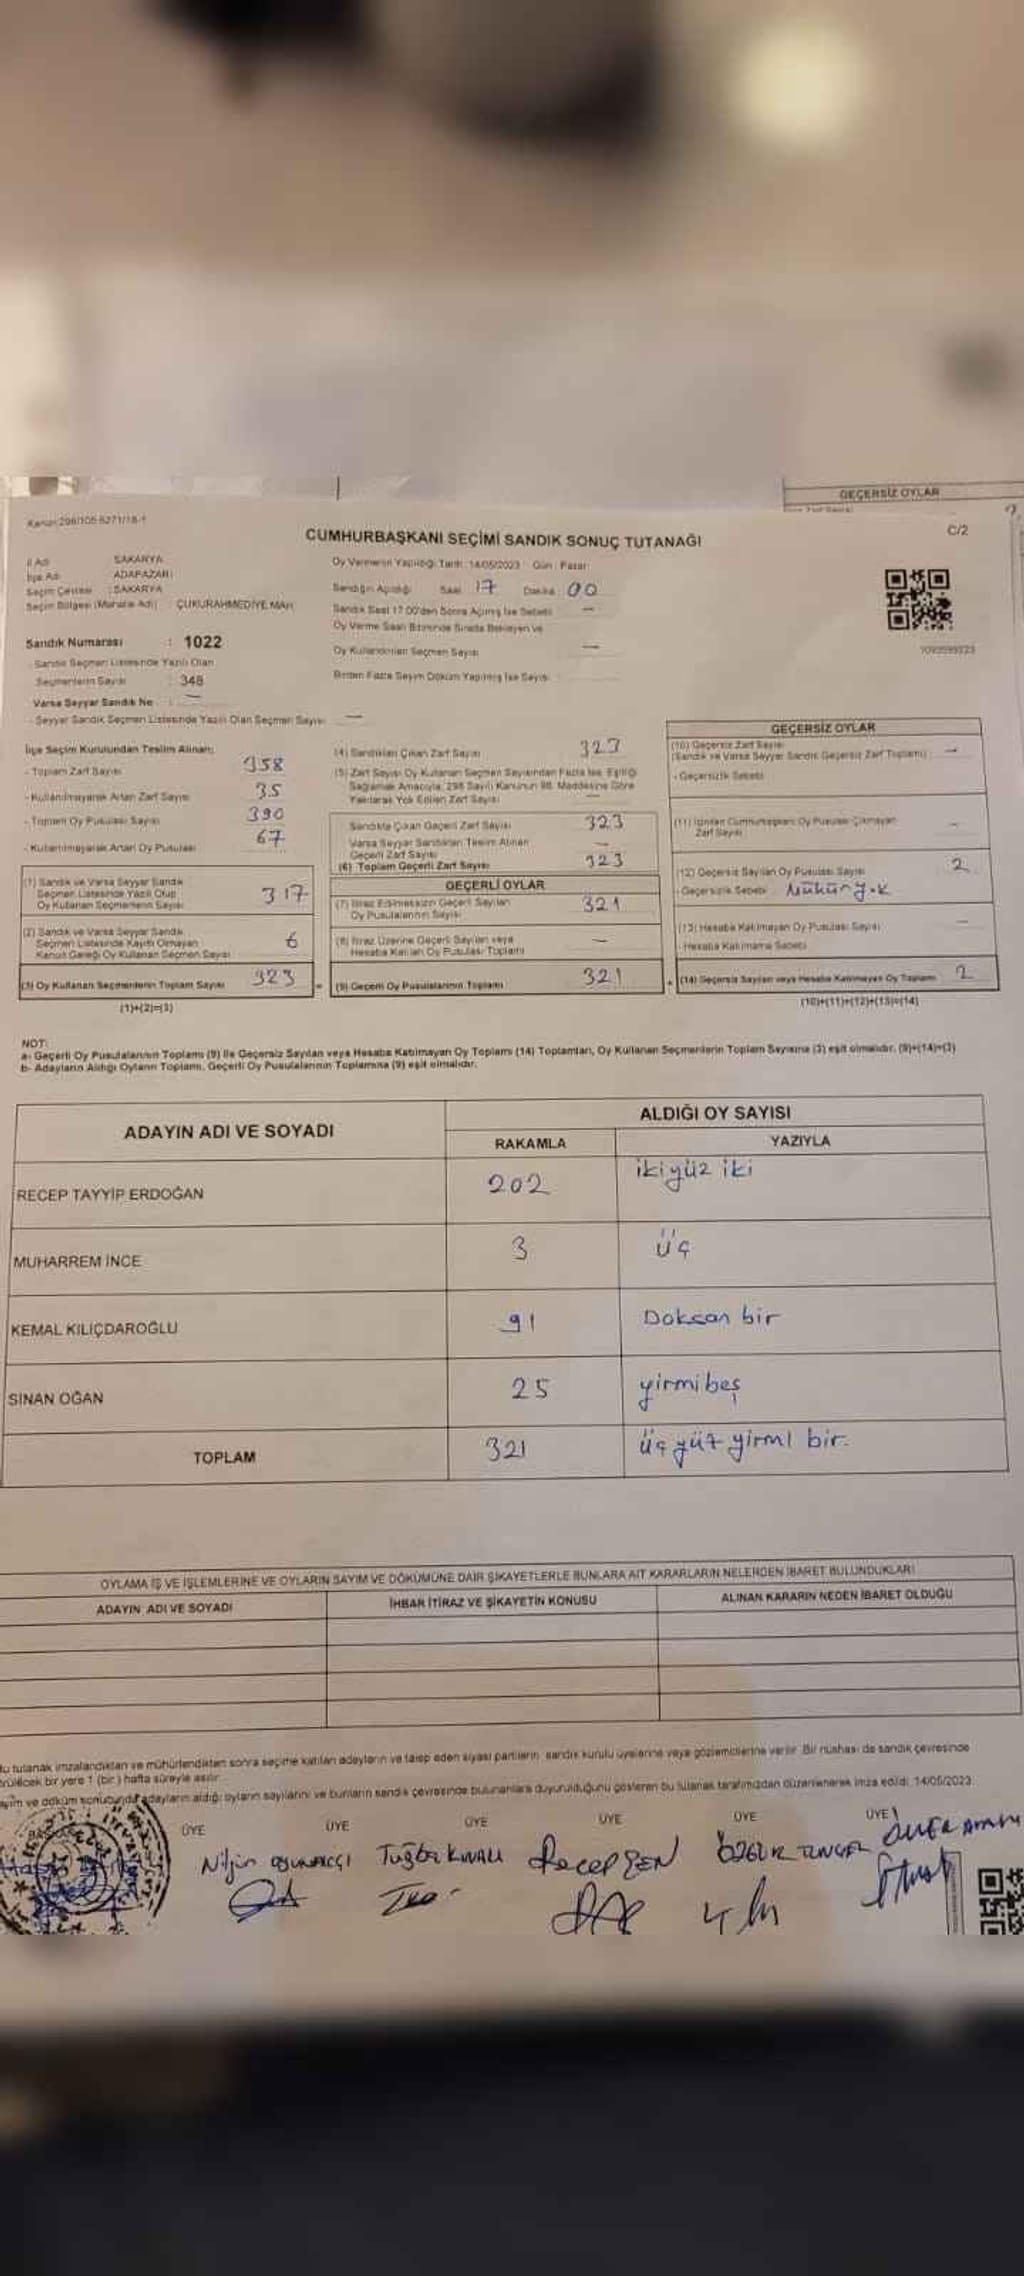 GEÇERSİZ OYLAR
Kanun:298/105-6271/18-1
C/2
CUMHURBAŞKANI SEÇİMİ SANDIK SONUÇ TUTANAĞI
İl Adı SAKARYA
İlçe Adı ADAPAZARI
Seçim Çevresi : SAKARYA
Seçim Bölgesi (Mahalle Adı) : ÇUKURAHMEDİYE MAH.
Sandık Numarası : 1022
- Sandık Seçmen Listesinde Yazılı Olan
Seçmenlerin Sayısı : 348
Varsa Seyyar Sandık No : —
- Seyyar Sandık Seçmen Listesinde Yazılı Olan Seçmen Sayısı —
Oy Vermenin Yapıldığı Tarih: 14/05/2023 Gün : Pazar
Sandığın Açıldığı Saat 17 Dakika 00
Sandık Saat 17.00'den Sonra Açılmış İse Sebebi —
Oy Verme Saati Bitiminde Sırada Bekleyen ve
Oy Kullandırılan Seçmen Sayısı —
Birden Fazla Sayım Döküm Yapılmış İse Sayısı
İlçe Seçim Kurulundan Teslim Alınan:
- Toplam Zarf Sayısı 358
- Kullanılmayarak Artan Zarf Sayısı 35
- Toplam Oy Pusulası Sayısı 390
- Kullanılmayarak Artan Oy Pusulası 67
(1) Sandık ve Varsa Seyyar Sandık
Seçmen Listesinde Yazılı Olup
Oy Kullanan Seçmenlerin Sayısı 317
(2) Sandık ve Varsa Seyyar Sandık
Seçmen Listesinde Kayıtlı Olmayan
Kanun Gereği Oy Kullanan Seçmen Sayısı 6
(3) Oy Kullanan Seçmenlerin Toplam Sayısı 323
(1)+(2)=(3)
(4) Sandıktan Çıkan Zarf Sayısı 323
(5) Zarf Sayısı Oy Kullanan Seçmen Sayısından Fazla İse, Eşitliği
Sağlamak Amacıyla, 298 Sayılı Kanunun 98. Maddesine Göre
Yakılarak Yok Edilen Zarf Sayısı —
Sandıkta Çıkan Geçerli Zarf Sayısı 323
Varsa Seyyar Sandıktan Teslim Alınan
Geçerli Zarf Sayısı —
(6) Toplam Geçerli Zarf Sayısı 323
GEÇERLİ OYLAR
(7) İtiraz Edilmeksizin Geçerli Sayılan
Oy Pusulalarının Sayısı 321
(8) İtiraz Üzerine Geçerli Sayılan veya
Hesaba Katılan Oy Pusulası Toplamı —
(9) Geçerli Oy Pusulalarının Toplamı 321
GEÇERSİZ OYLAR
(10) Geçersiz Zarf Sayısı
(Sandık ve Varsa Seyyar Sandık Geçersiz Zarf Toplamı) —
- Geçersizlik Sebebi
(11) İçinden Cumhurbaşkanı Oy Pusulası Çıkmayan
Zarf Sayısı —
(12) Geçersiz Sayılan Oy Pusulası Sayısı 2
- Geçersizlik Sebebi Mühür yok
(13) Hesaba Katılmayan Oy Pusulası Sayısı —
- Hesaba Katılmama Sebebi
(14) Geçersiz Sayılan veya Hesaba Katılmayan Oy Toplamı 2
(10)+(11)+(12)+(13)=(14)
NOT:
a- Geçerli Oy Pusulalarının Toplamı (9) ile Geçersiz Sayılan veya Hesaba Katılmayan Oy Toplamı (14) Toplamları, Oy Kullanan Seçmenlerin Toplam Sayısına (3) eşit olmalıdır. (9)+(14)=(3)
b- Adayların Aldığı Oyların Toplamı, Geçerli Oy Pusulalarının Toplamına (9) eşit olmalıdır.
ADAYIN ADI VE SOYADI ALDIĞI OY SAYISI
RAKAMLA YAZIYLA
RECEP TAYYİP ERDOĞAN 202 ikiyüz iki
MUHARREM İNCE 3 üç
KEMAL KILIÇDAROĞLU 91 Doksan bir
SİNAN OĞAN 25 yirmibeş
TOPLAM 321 üç yüz yirmi bir.
OYLAMA İŞ VE İŞLEMLERİNE VE OYLARIN SAYIM VE DÖKÜMÜNE DAİR ŞİKAYETLERLE BUNLARA AİT KARARLARIN NELERDEN İBARET BULUNDUKLARI
ADAYIN ADI VE SOYADI İHBAR İTİRAZ VE ŞİKAYETİN KONUSU ALINAN KARARIN NEDEN İBARET OLDUĞU
tutanak imzalandıktan ve mühürlendikten sonra seçime katılan adayların ve talep eden siyasi partilerin sandık kurulu üyelerine veya gözlemcilerine verilir. Bir nüshası da sandık çevresinde
bir yere 1 (bir) hafta süreyle asılır.
ve döküm sonucunda adayların aldığı oyların sayılarını ve bunların sandık çevresinde bulunanlara duyurulduğunu gösteren bu tutanak tarafımızdan düzenlenerek imza edildi. 14/05/2023
ÜYE ÜYE ÜYE ÜYE ÜYE ÜYE
Tuğba Recep ŞEN ÖZGÜR